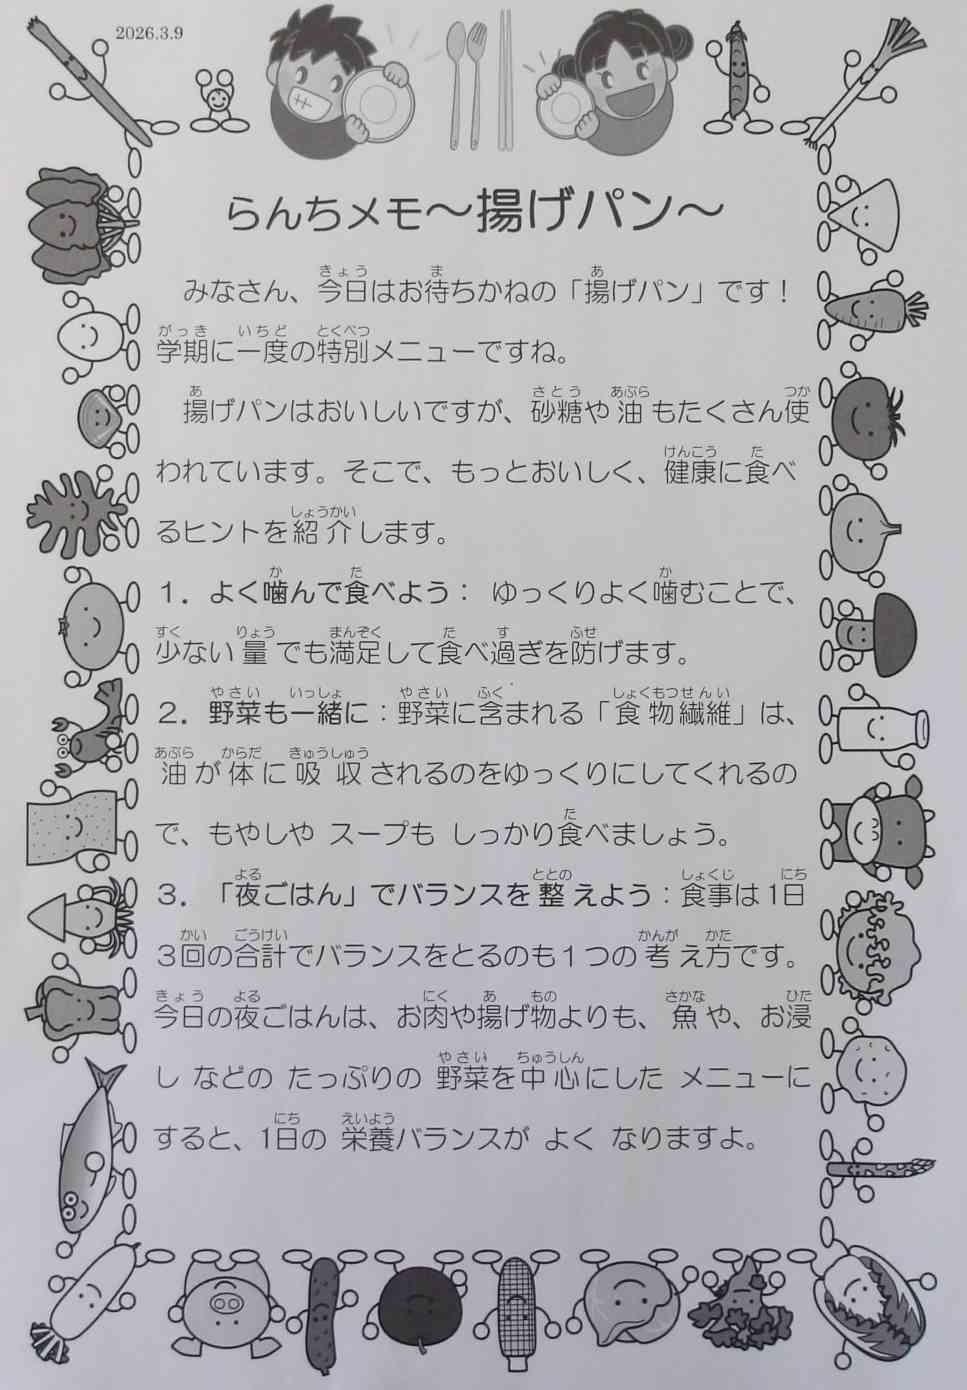 2026.3.9
らんちメモ～揚げパン～
みなさん、今日はお待ちかねの「揚げパン」です！
学期に一度の特別メニューですね。
揚げパンはおいしいですが、砂糖や油もたくさん使
われています。そこで、もっとおいしく、健康に食べ
るヒントを紹介します。
１．よく噛んで食べよう： ゆっくりよく噛むことで、
少ない量でも満足して食べ過ぎを防げます。
２．野菜も一緒に：野菜に含まれる「食物繊維」は、
油が体に吸収されるのをゆっくりにしてくれるの
で、もやしや スープも しっかり食べましょう。
３．「夜ごはん」でバランスを整えよう：食事は1日
３回の合計でバランスをとるのも１つの考え方です。
今日の夜ごはんは、お肉や揚げ物よりも、魚や、お浸
し などの たっぷりの 野菜を中心にした メニューに
すると、1日の 栄養バランスが よく なりますよ。